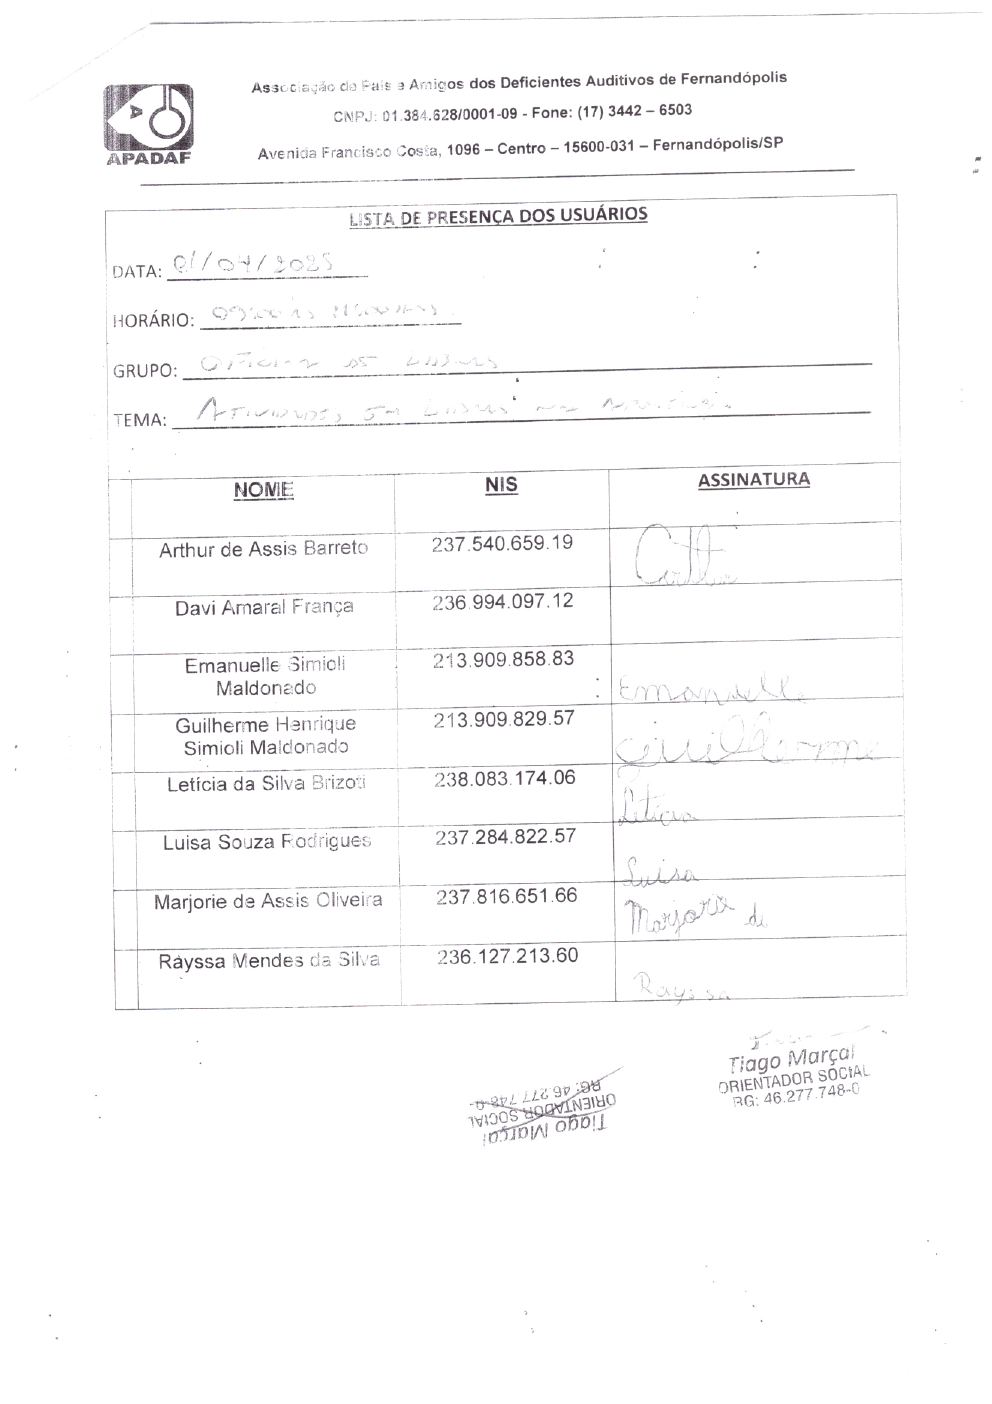 Associação de Pais e Amigos dos Deficientes Auditivos de Fernandópolis
CNPJ: 01.384.628/0001-09 - Fone: (17) 3442 – 6503
Avenida Francisco Costa, 1096 – Centro – 15600-031 – Fernandópolis/SP
APADAF
LISTA DE PRESENÇA DOS USUÁRIOS
DATA: 01/04/2025
HORÁRIO:
GRUPO: Oficina de Libras
TEMA: Atividades em Libras na
NOME NIS ASSINATURA
Arthur de Assis Barreto 237.540.659.19
Davi Amaral França 236.994.097.12
Emanuelle Simioli
Maldonado 213.909.858.83 Emanuelle
Guilherme Henrique
Simioli Maldonado 213.909.829.57 Guilherme
Letícia da Silva Brizoti 238.083.174.06 Letícia
Luisa Souza Rodrigues 237.284.822.57 Luisa
Marjorie de Assis Oliveira 237.816.651.66 Marjorie di
Rayssa Mendes da Silva 236.127.213.60 Rayssa
Tiago Marçal
ORIENTADOR SOCIAL
RG: 46.277.748-0
Tiago Marçal
ORIENTADOR SOCIAL
RG: 46.277.748-0